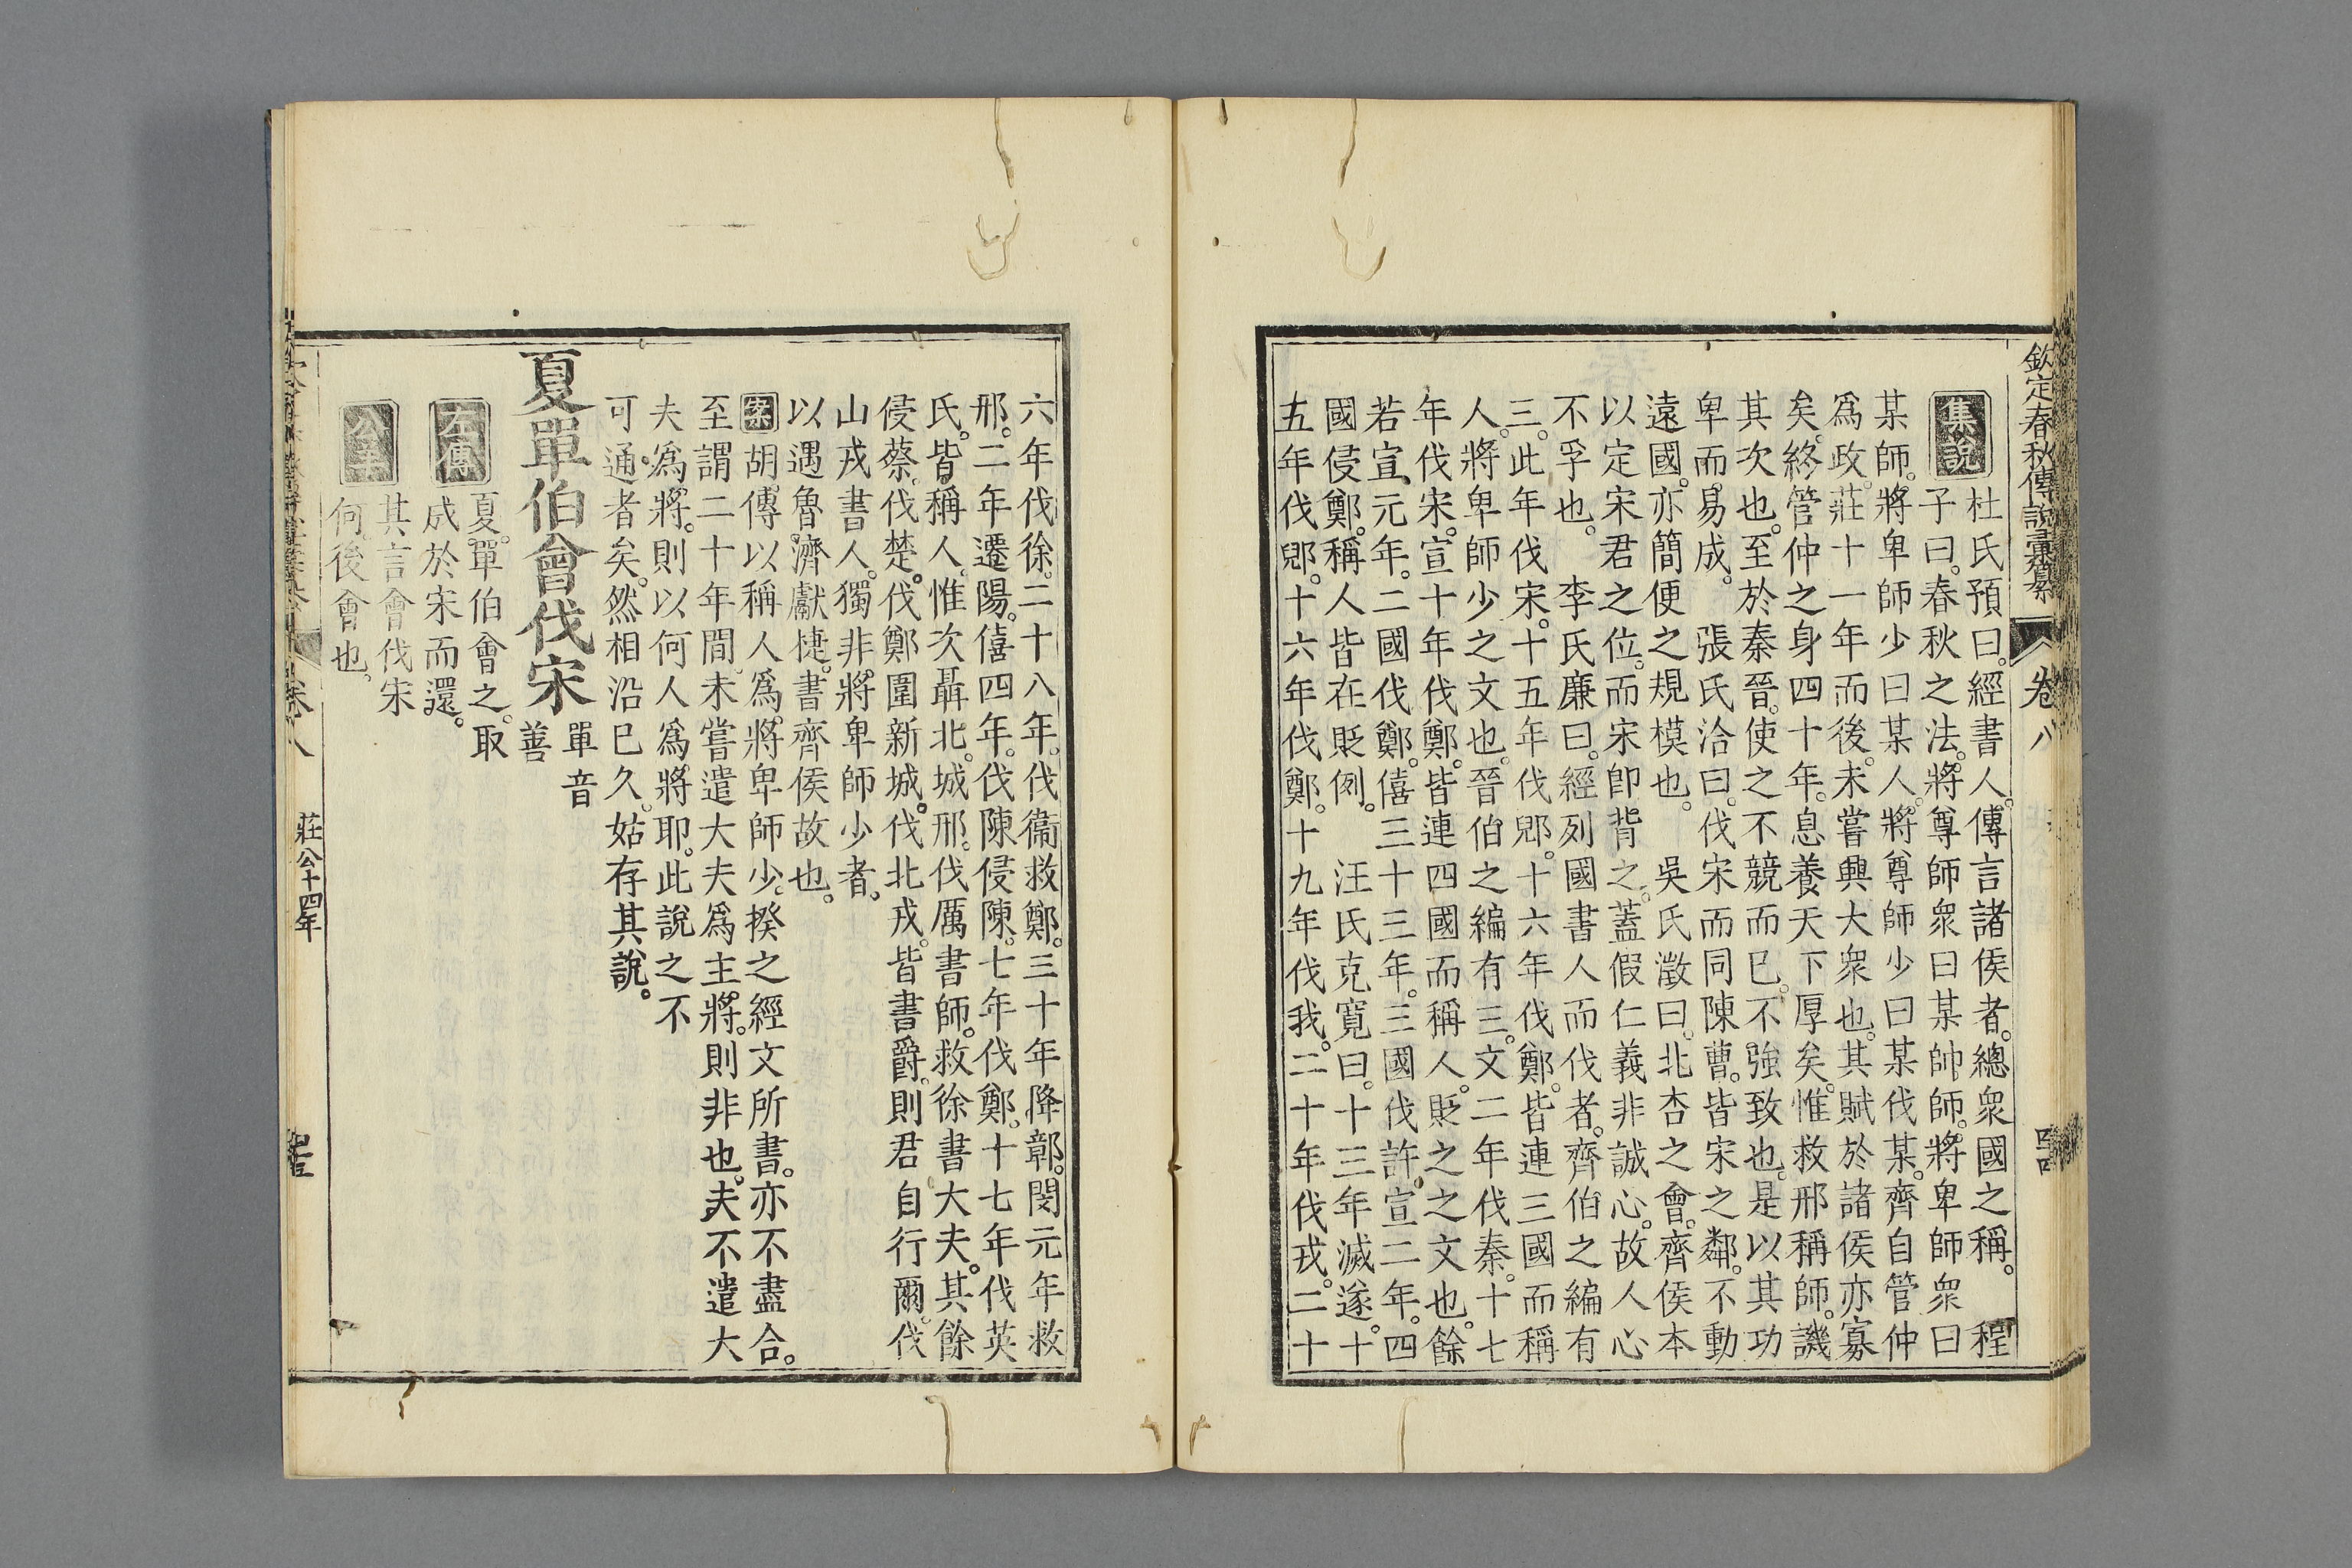 欽定春秋傳說彙纂 卷八
集說 杜氏預曰。經書人。傳言諸侯者。總衆國之稱。 程
子曰。春秋之法。將尊師衆曰某帥師。將卑師衆曰
某師。將卑師少曰某人。將尊師少曰某伐某。齊自管仲
爲政。莊十一年而後。未嘗興大衆也。其賦於諸侯亦寡
矣。終管仲之身四十年。息養天下厚矣。惟救邢稱師。譏
其次也。至於秦晉。使之不競而已。不強致也。是以其功
卑而易成。 張氏洽曰。伐宋而同陳曹。皆宋之鄰。不動
遠國。亦簡便之規模也。 吳氏澂曰。北杏之會。齊侯本
以定宋君之位。而宋卽背之。蓋假仁義非誠心。故人心
不孚也。 李氏廉曰。經列國書人而伐者。齊伯之編有
三。此年伐宋。十五年伐郳。十六年伐鄭。皆連三國而稱
人。將卑師少之文也。晉伯之編有三。文二年伐秦。十七
年伐宋。宣十年伐鄭。皆連四國而稱人。貶之之文也。餘
若宣元年。二國伐鄭。僖三十三年。三國伐許。宣二年。四
國侵鄭。稱人皆在貶例。 汪氏克寬曰。十三年滅遂。十
五年伐郳。十六年伐鄭。十九年伐我。二十年伐戎。二十
六年伐徐。二十八年。伐衞救鄭。三十年降鄣。閔元年救
邢。二年遷陽。僖四年。伐陳侵陳。七年伐鄭。十七年伐英
氏。皆稱人。惟次聶北。城邢。伐厲書師。救徐書大夫。其餘
侵蔡。伐楚。伐鄭圍新城。伐北戎。皆書爵。則君自行爾。伐
山戎書人。獨非將卑師少者。
以遇魯濟獻捷。書齊侯故也。
案 胡傳以稱人爲將卑師少。揆之經文所書。亦不盡合。
至謂二十年間。未嘗遣大夫爲主將。則非也。夫不遣大
夫爲將。則以何人爲將耶。此說之不
可通者矣。然相沿已久。姑存其說。
夏單伯會伐宋 單音
善
左傳 夏。單伯會之。取
成於宋而還。
公羊 其言會伐宋
何。後會也。
卷八 莊公十四年